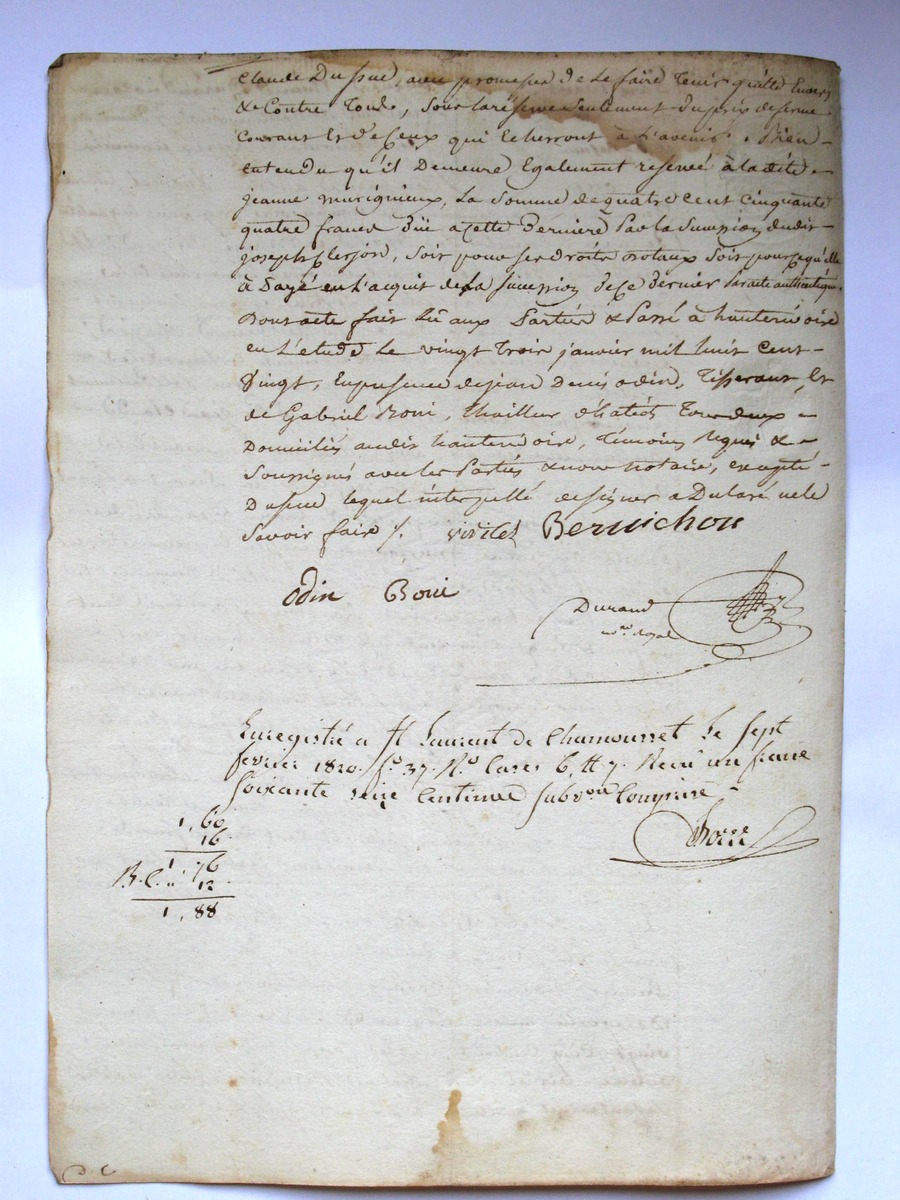 Claude Dupue, avec promesse de le faire tenir quitte Envers
& Contre Tous, sous la réserve seulement du prix de ferme
Courant Et de Ceux qui Echerront à L'avenir. Bien
Entendu qu'il Demeure Egalement reservé à la dite
jeanne murigneux, La somme de quatre Cent Cinquante
quatre francs Düe a Cette Derniere Par la Succession dudit
joseph Clerjon, soit pour ses droits dotaux soit pour Ce qu'elle
à Payé en L'acquit de La succession de Ce Dernier Par acte authentique.
Dont acte fait Lû aux Parties & Passé à hauterivoire
en L'etude Le vingt Trois janvier mil huit Cent
Vingt, En presence de jean Denis odin, Tisserant, Et
de Gabriel Boni, Thailleur d'habits Tous deux
Domiciliés audit hauterivoire, Témoins Requis &
Soussignés avec les Parties & nous notaire, excepté
Dupue lequel interpellé de signer a Declaré ne le
Savoir faire /. Bernichon
Odin Boni
Durand
no.re Royal
Enregistré a St Laurent de Chamousset le sept
fevrier 1820. fo 37. Ro Cases 6, et 7. Recu un franc
soixante seize Centimes subvon Comprise
1, 60
16
1, 76
12
1, 88